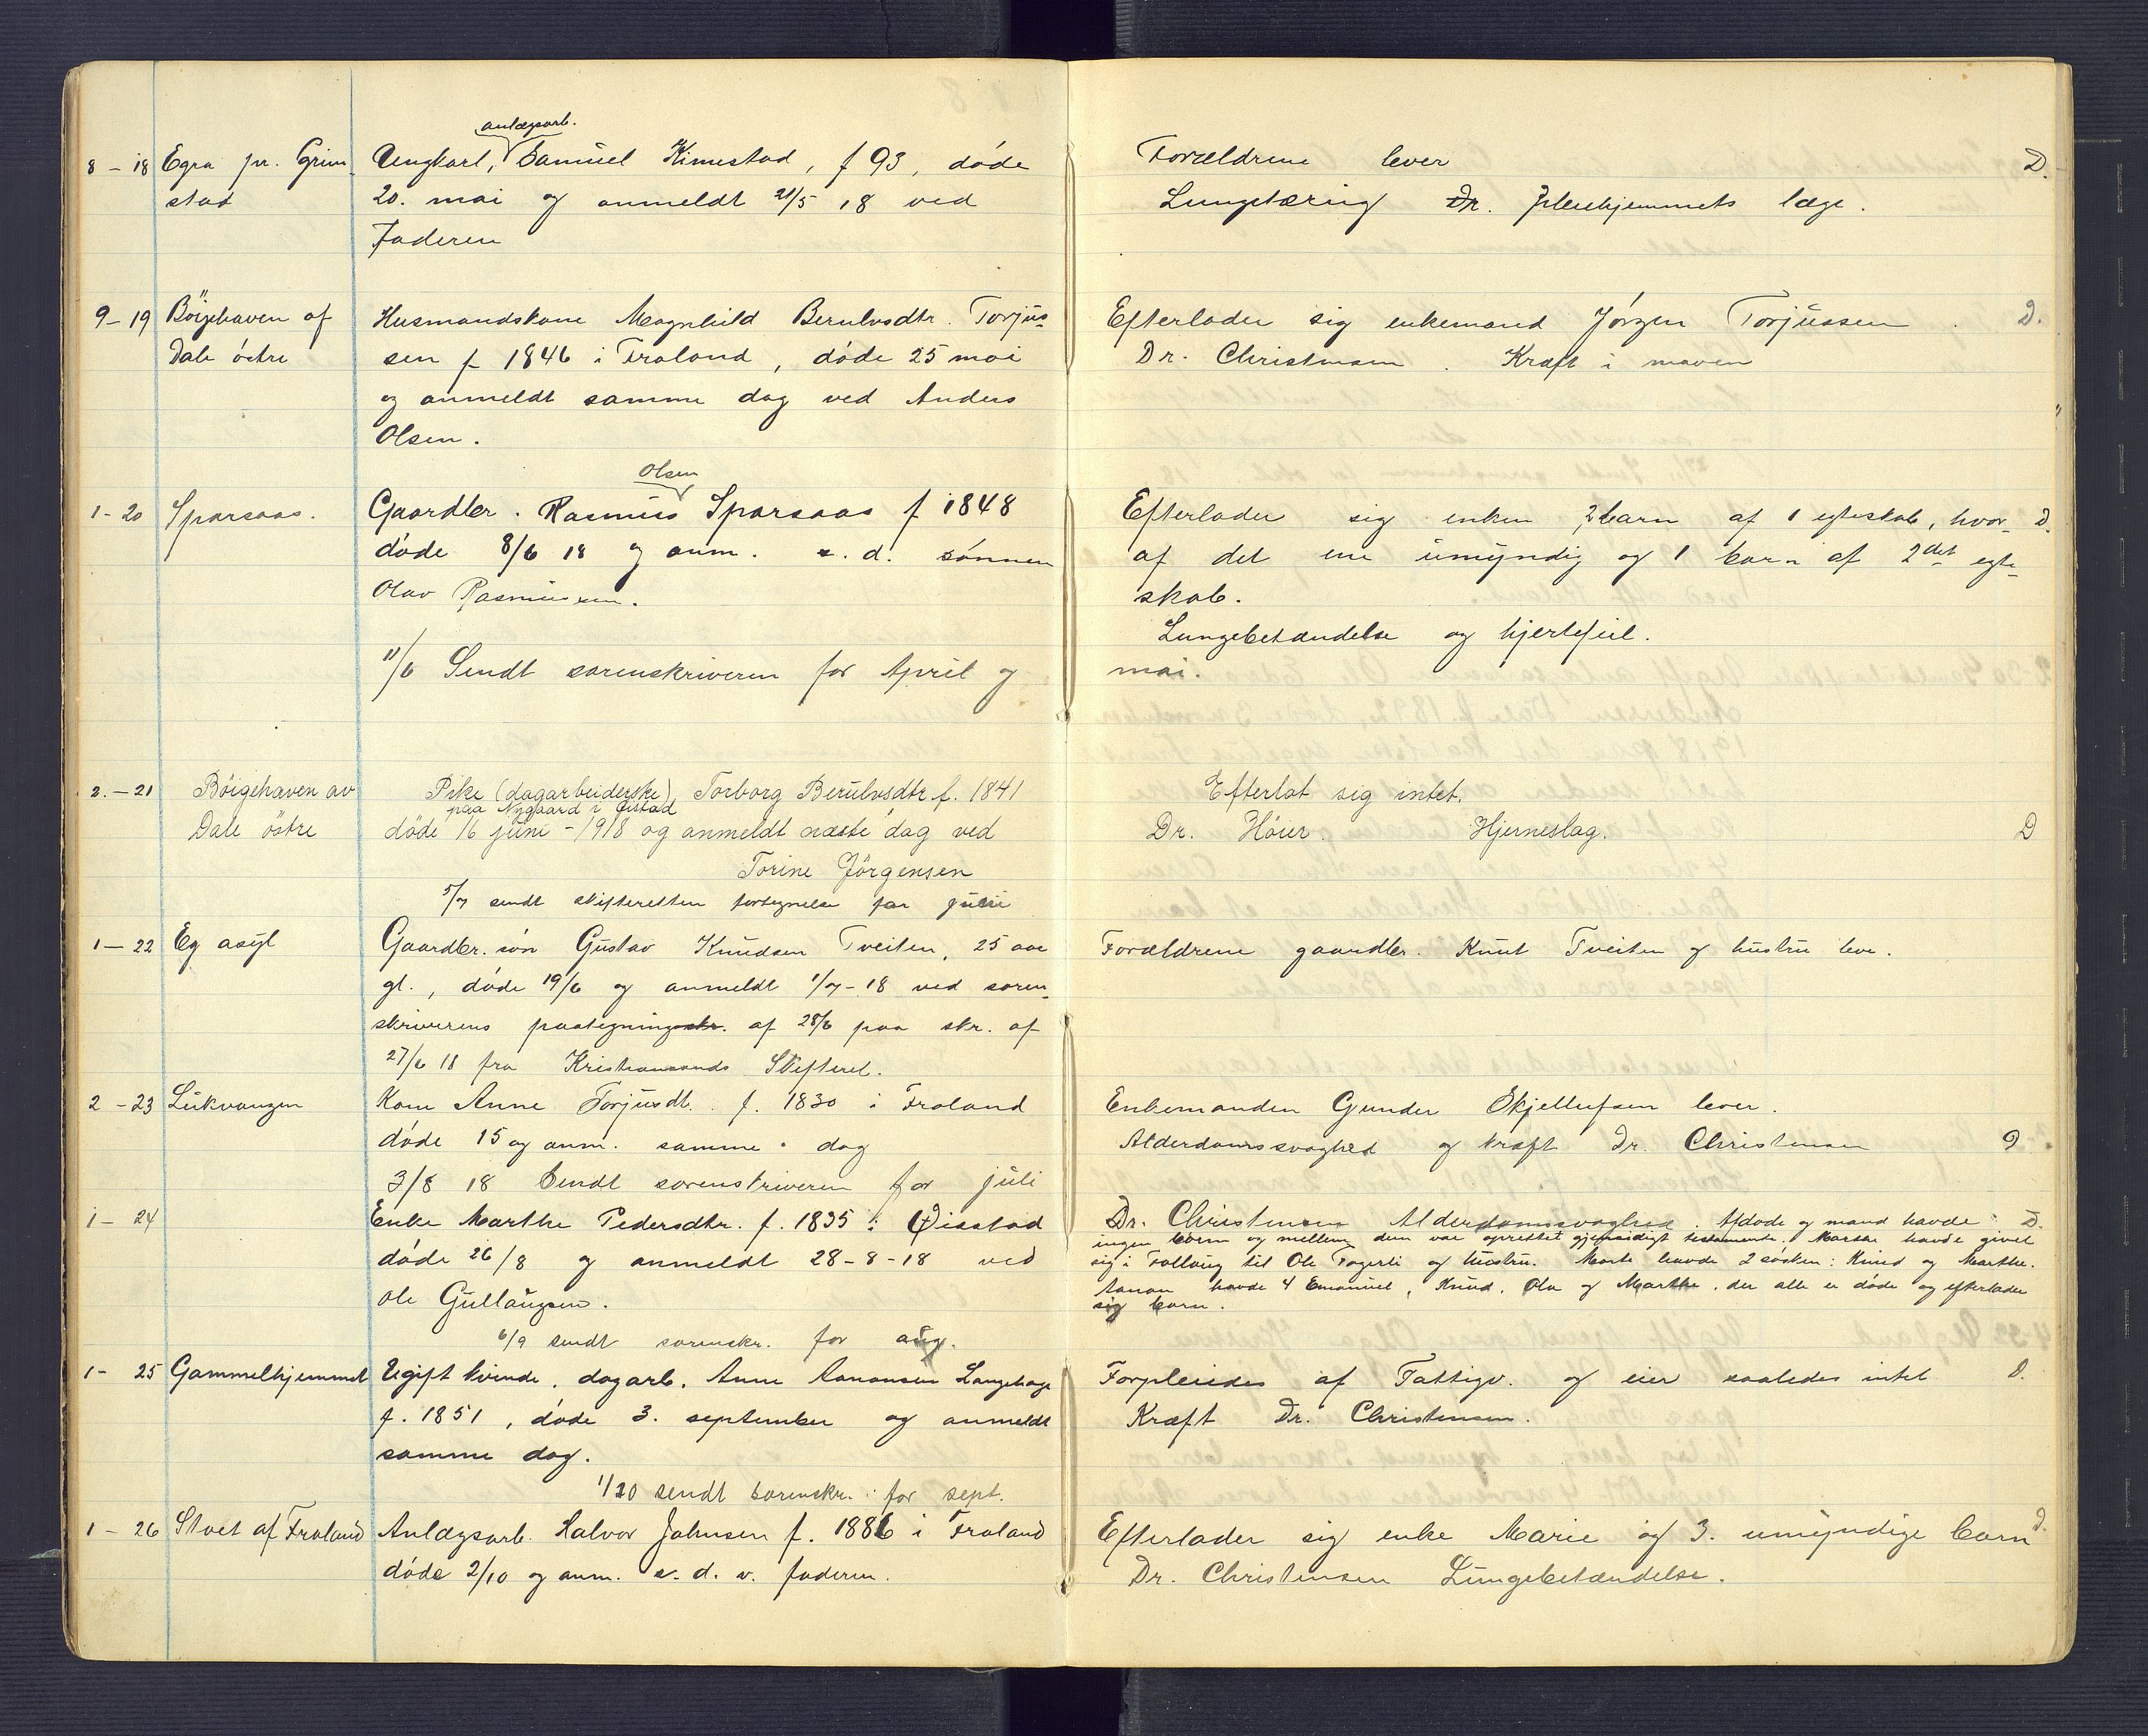 anlægsarb.
8 – 18 Egra pr. Grim- Ungkarl, Samuel Kimestad, f 93, døde
stad 20. mai og anmeldt 21/5 18 ved
Faderen
Forældrene lever D.
Lungetæring Dr. Pleiehjemmets læge.
9 – 19 Böigehaven af Husmandskone Magnhild Berulvsdtr. Torjus-
Dale östre sen f 1846 i Froland, døde 25 mai
og anmeldt samme dag ved Anders
Olsen.
Efterlader sig enkemand Jörgen Torjussen. D.
Dr. Christensen. Kræft i maven
Olsen
1 - 20 Sparsaas. Gaardbr. Rasmus Sparsaas f 1848
døde 8/6 18 og anm. s. d. sønnen
Olav Rasmussen.
Efterlader sig enken 2 barn af 1 egteskab, hvor- D.
af det ene umyndig og 1 barn af 2det egte-
skab.
Lungebetændelse og hjertefeil.
11/6 Sendt sorenskriveren for April og mai.
2. – 21 Böigehaven av Pike (dagarbeiderske) Torborg Berulvsdtr f. 1841
paa Nygaard i Øistad
Dale östre döde 16 juni - 1918 og anmeldt næste dag ved
Torine Jörgensen
Efterlot sig intet.
Dr. Höier. Hjerneslag. D
5/7 sendt skifteretten fortegnelse for juni
1 – 22 Eg asyl Gaardbr. søn Gustav Knudsen Tveiten, 25 aar
gl., døde 19/6 og anmeldt 1/7 - 18 ved soren-
skriverens paategningsskr. af 28/6 paa skr. af
27/6 18 fra Kristiansands Skifteret.
Forældrene gaardbr. Knut Tveiten og hustru lever.
2 – 23 Lukvangen Kone Anne Torjusdt. f. 1830 i Froland
døde 15 og anm. samme dag
Enkemanden Gunder Skjellufsen lever.
Alderdomssvaghed og kræft Dr. Christensen D
3/8 18 Sendt sorenskriveren for juli
1 - 24 Enke Marthe Pedersdtr. f. 1835 i Øisstad
døde 26/8 og anmeldt 28 - 8 - 18 ved
Ole Gullaugsen.
Dr. Christensen Alderdomssvaghed. Afdøde og mand havde D.
ingen barn og mellem dem var oprettet gjensidigt testamente. Marthe havde givet
sig i Follaug til Ole Fagerli og hustru. Marte havde 2 søsken: Knud og Marthe.
havde 4 Emanuel, Knud, Ola og Marthe, der alle er døde og efterlader
sig barn.
6/9 sendt sorenskr. for aug.
1 - 25 Gammelhjemmet Ugift kvinde, dagarb. Anne Aanonsen Langehage
f. 1851, døde 3. september og anmeldt
samme dag.
Forpleiedes af Fattigv. og eier saaledes intet D.
Kræft Dr. Christensen.
1/10 sendt sorenskr. for sept.
1 – 26 Stoet af Froland Anlægsarb. Halvor Johnsen f. 1886 i Froland
døde 2/10 og anm. s. d. v. faderen.
Efterlader sig enke Marie og 3. umyndige barn D.
Dr. Christensen Lungebetændelse.